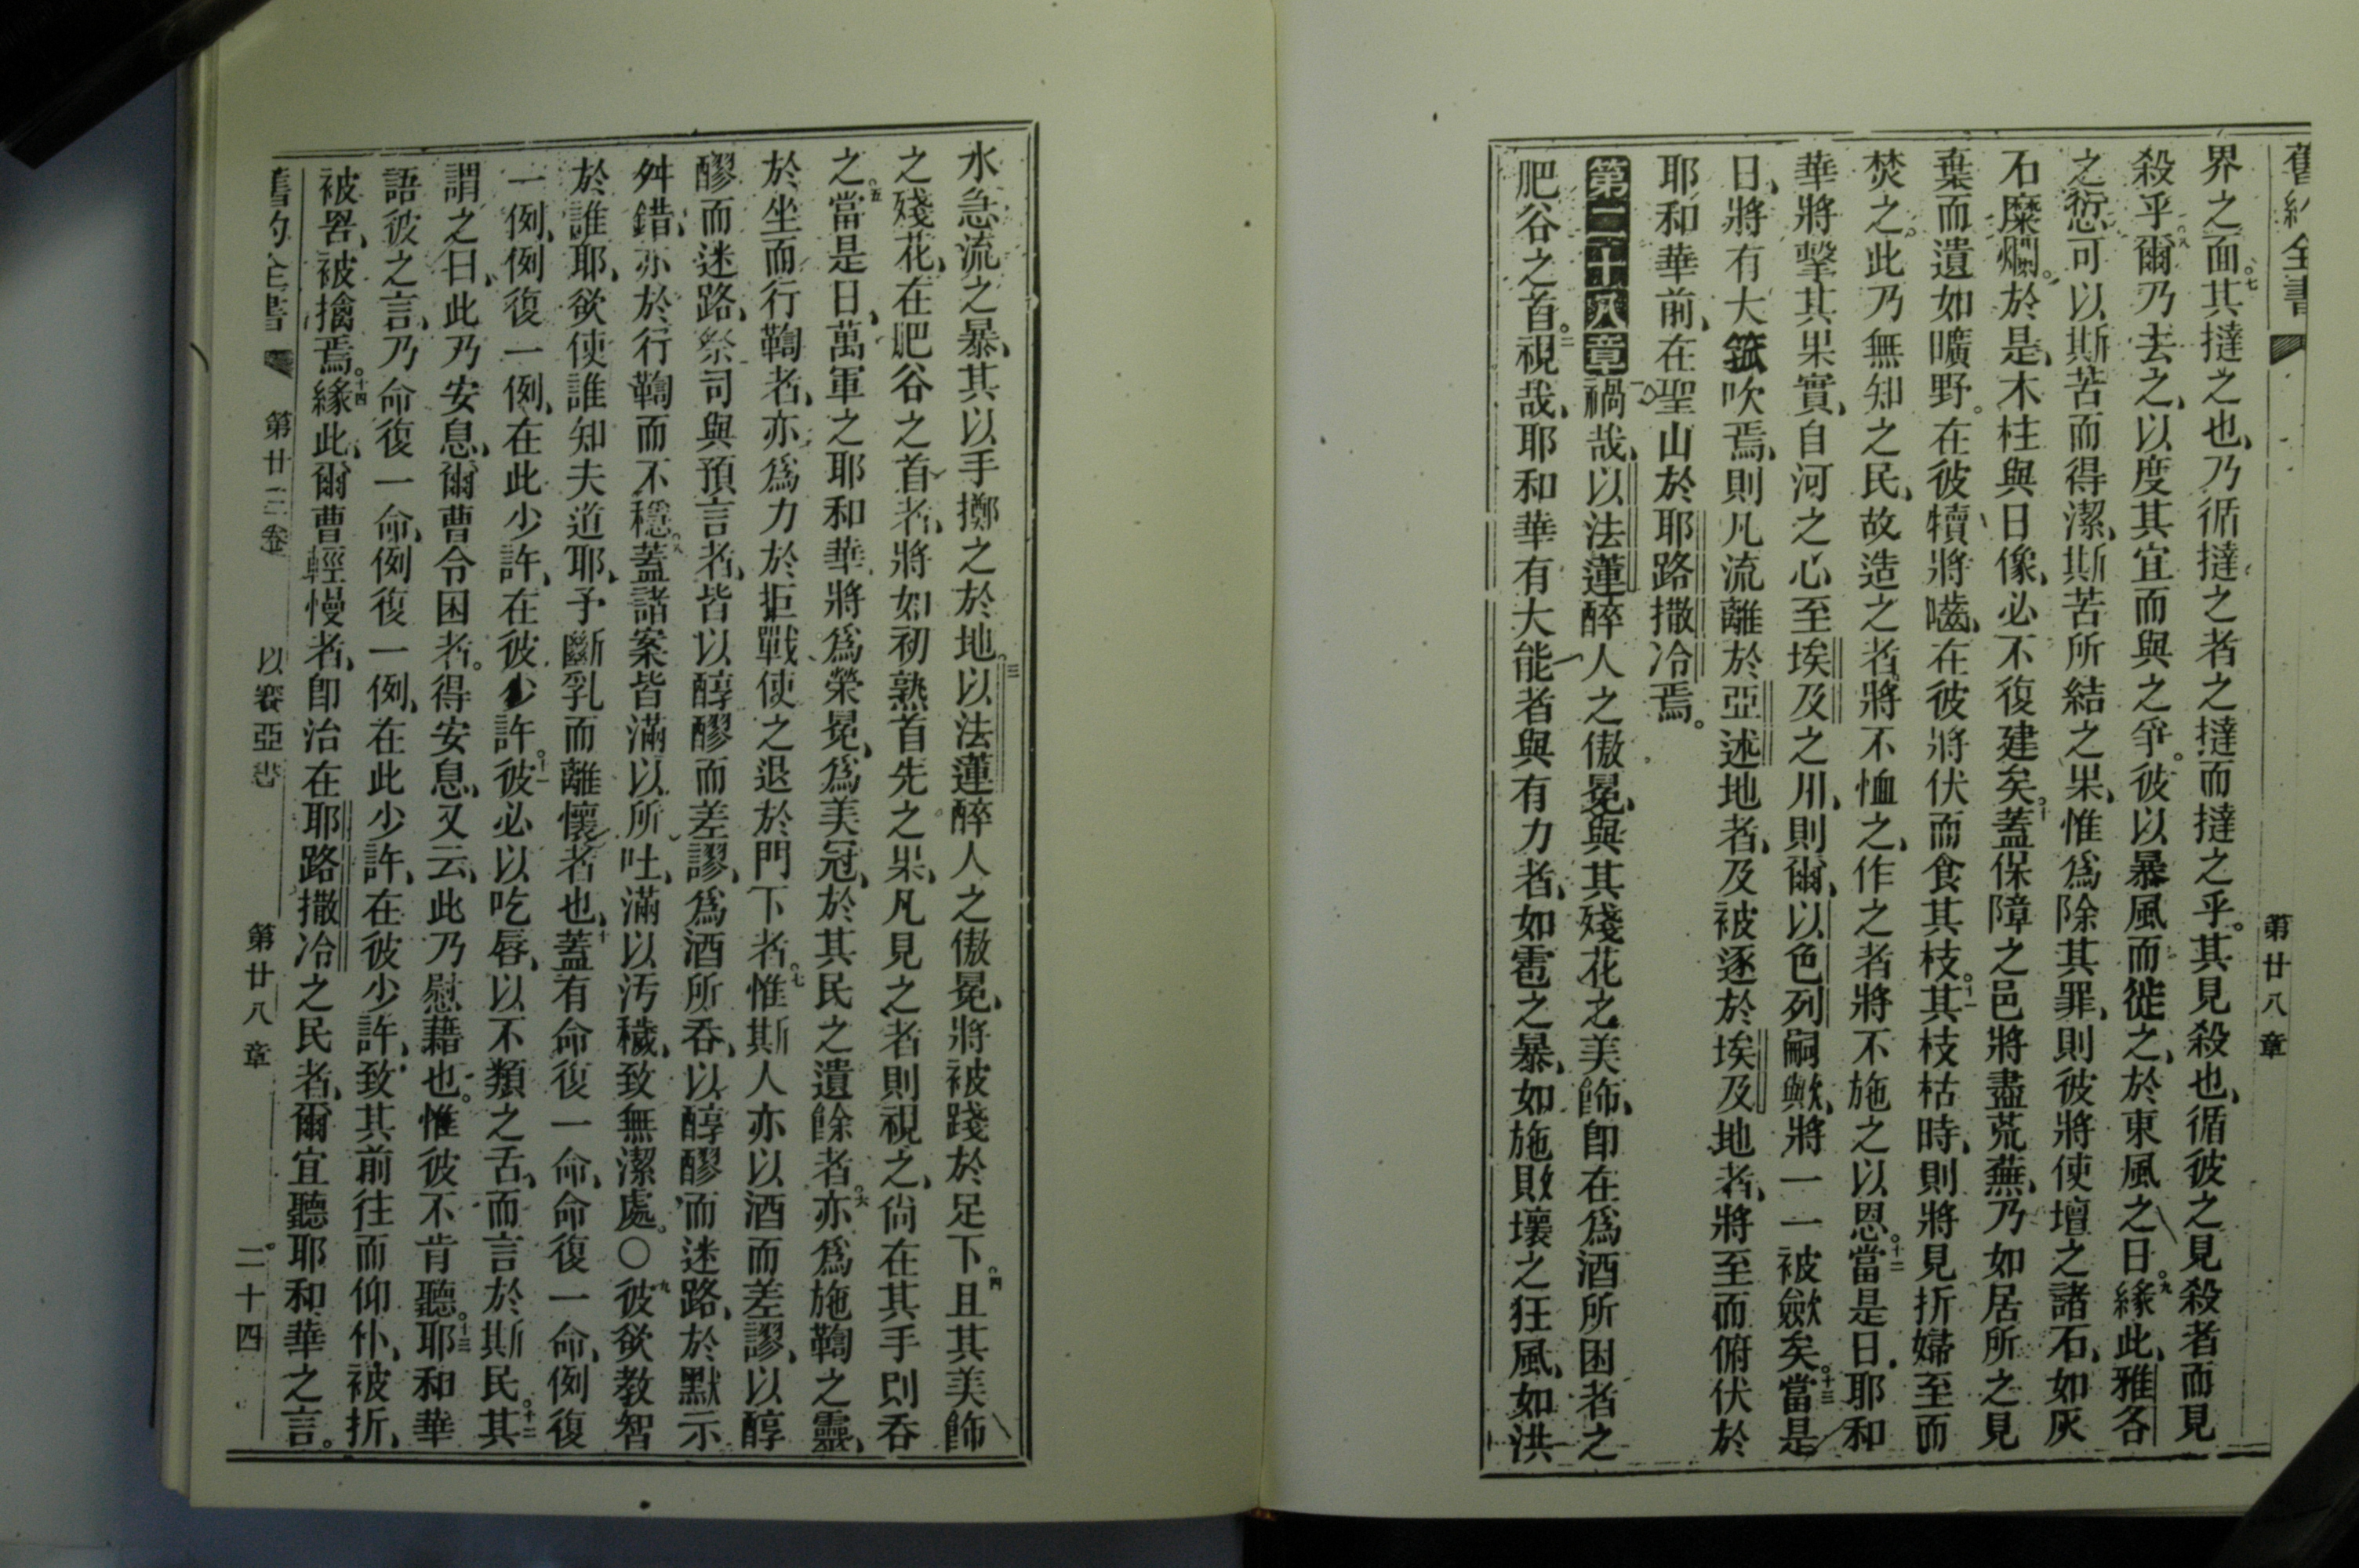 舊約全書 第廿八章
界之面。七其撻之也、乃循撻之者之撻而撻之乎。其見殺也、循彼之見殺者而見
殺乎。八爾乃去之、以度其宜而與之爭。彼以暴風而徙之、於東風之日。九緣此、雅各
之愆可以斯苦而得潔、斯苦所結之果、惟為除其罪、則彼將使壇之諸石、如灰
石糜爛。於是、木柱與日像、必不復建矣。十蓋保障之邑將盡荒蕪、乃如居所之見
棄而遺如曠野。在彼犢將嚙、在彼將伏而食其枝。十一其枝枯時、則將見折婦至而
焚之。此乃無知之民、故造之者將不恤之、作之者將不施之以恩。十二當是日、耶和
華將擊其果實、自河之心至埃及之川、則爾、以色列嗣歟、將一一被斂矣。十三當是
日、將有大箛吹焉、則凡流離於亞述地者、及被逐於埃及地者、將至而俯伏於
耶和華前、在聖山於耶路撒冷焉。
第二十八章 一禍哉、以法蓮醉人之傲冕、與其殘花之美飾、卽在為酒所困者之
肥谷之首。二視哉、耶和華有大能者與有力者、如雹之暴、如施敗壞之狂風、如洪
水急流之暴、其以手擲之於地。三以法蓮醉人之傲冕、將被踐於足下。四且其美飾
之殘花、在肥谷之首者、將如初熟首先之果、凡見之者則視之、尙在其手則吞
之。五當是日、萬軍之耶和華、將為榮冕、為美冠、於其民之遺餘者。六亦為施鞫之靈、
於坐而行鞫者、亦為力於拒戰、使之退於門下者。七惟斯人亦以酒而差謬、以醇
醪而迷路、祭司與預言者、皆以醇醪而差謬、為酒所吞、以醇醪而迷路、於默示
舛錯、亦於行鞫而不穩。八蓋諸案皆滿以所吐、滿以汚穢、致無潔處。〇九彼欲教智
於誰耶、欲使誰知夫道耶、予斷乳而離懷者也、十蓋有命復一命、命復一命、例復
一例、例復一例、在此少許、在彼少許。十一彼必以吃唇、以不類之舌、而言於斯民。十二其
謂之曰、此乃安息、爾曹令困者。得安息、又云、此乃慰藉也。惟彼不肯聽。十三耶和華
語彼之言、乃命復一命、例復一例、在此少許、在彼少許、致其前往而仰仆、被折、
被罟、被擒焉。十四緣此、爾曹輕慢者、卽治在耶路撒冷之民者、爾宜聽耶和華之言。
舊約全書 第廿三卷 以賽亞書 第廿八章 二十四